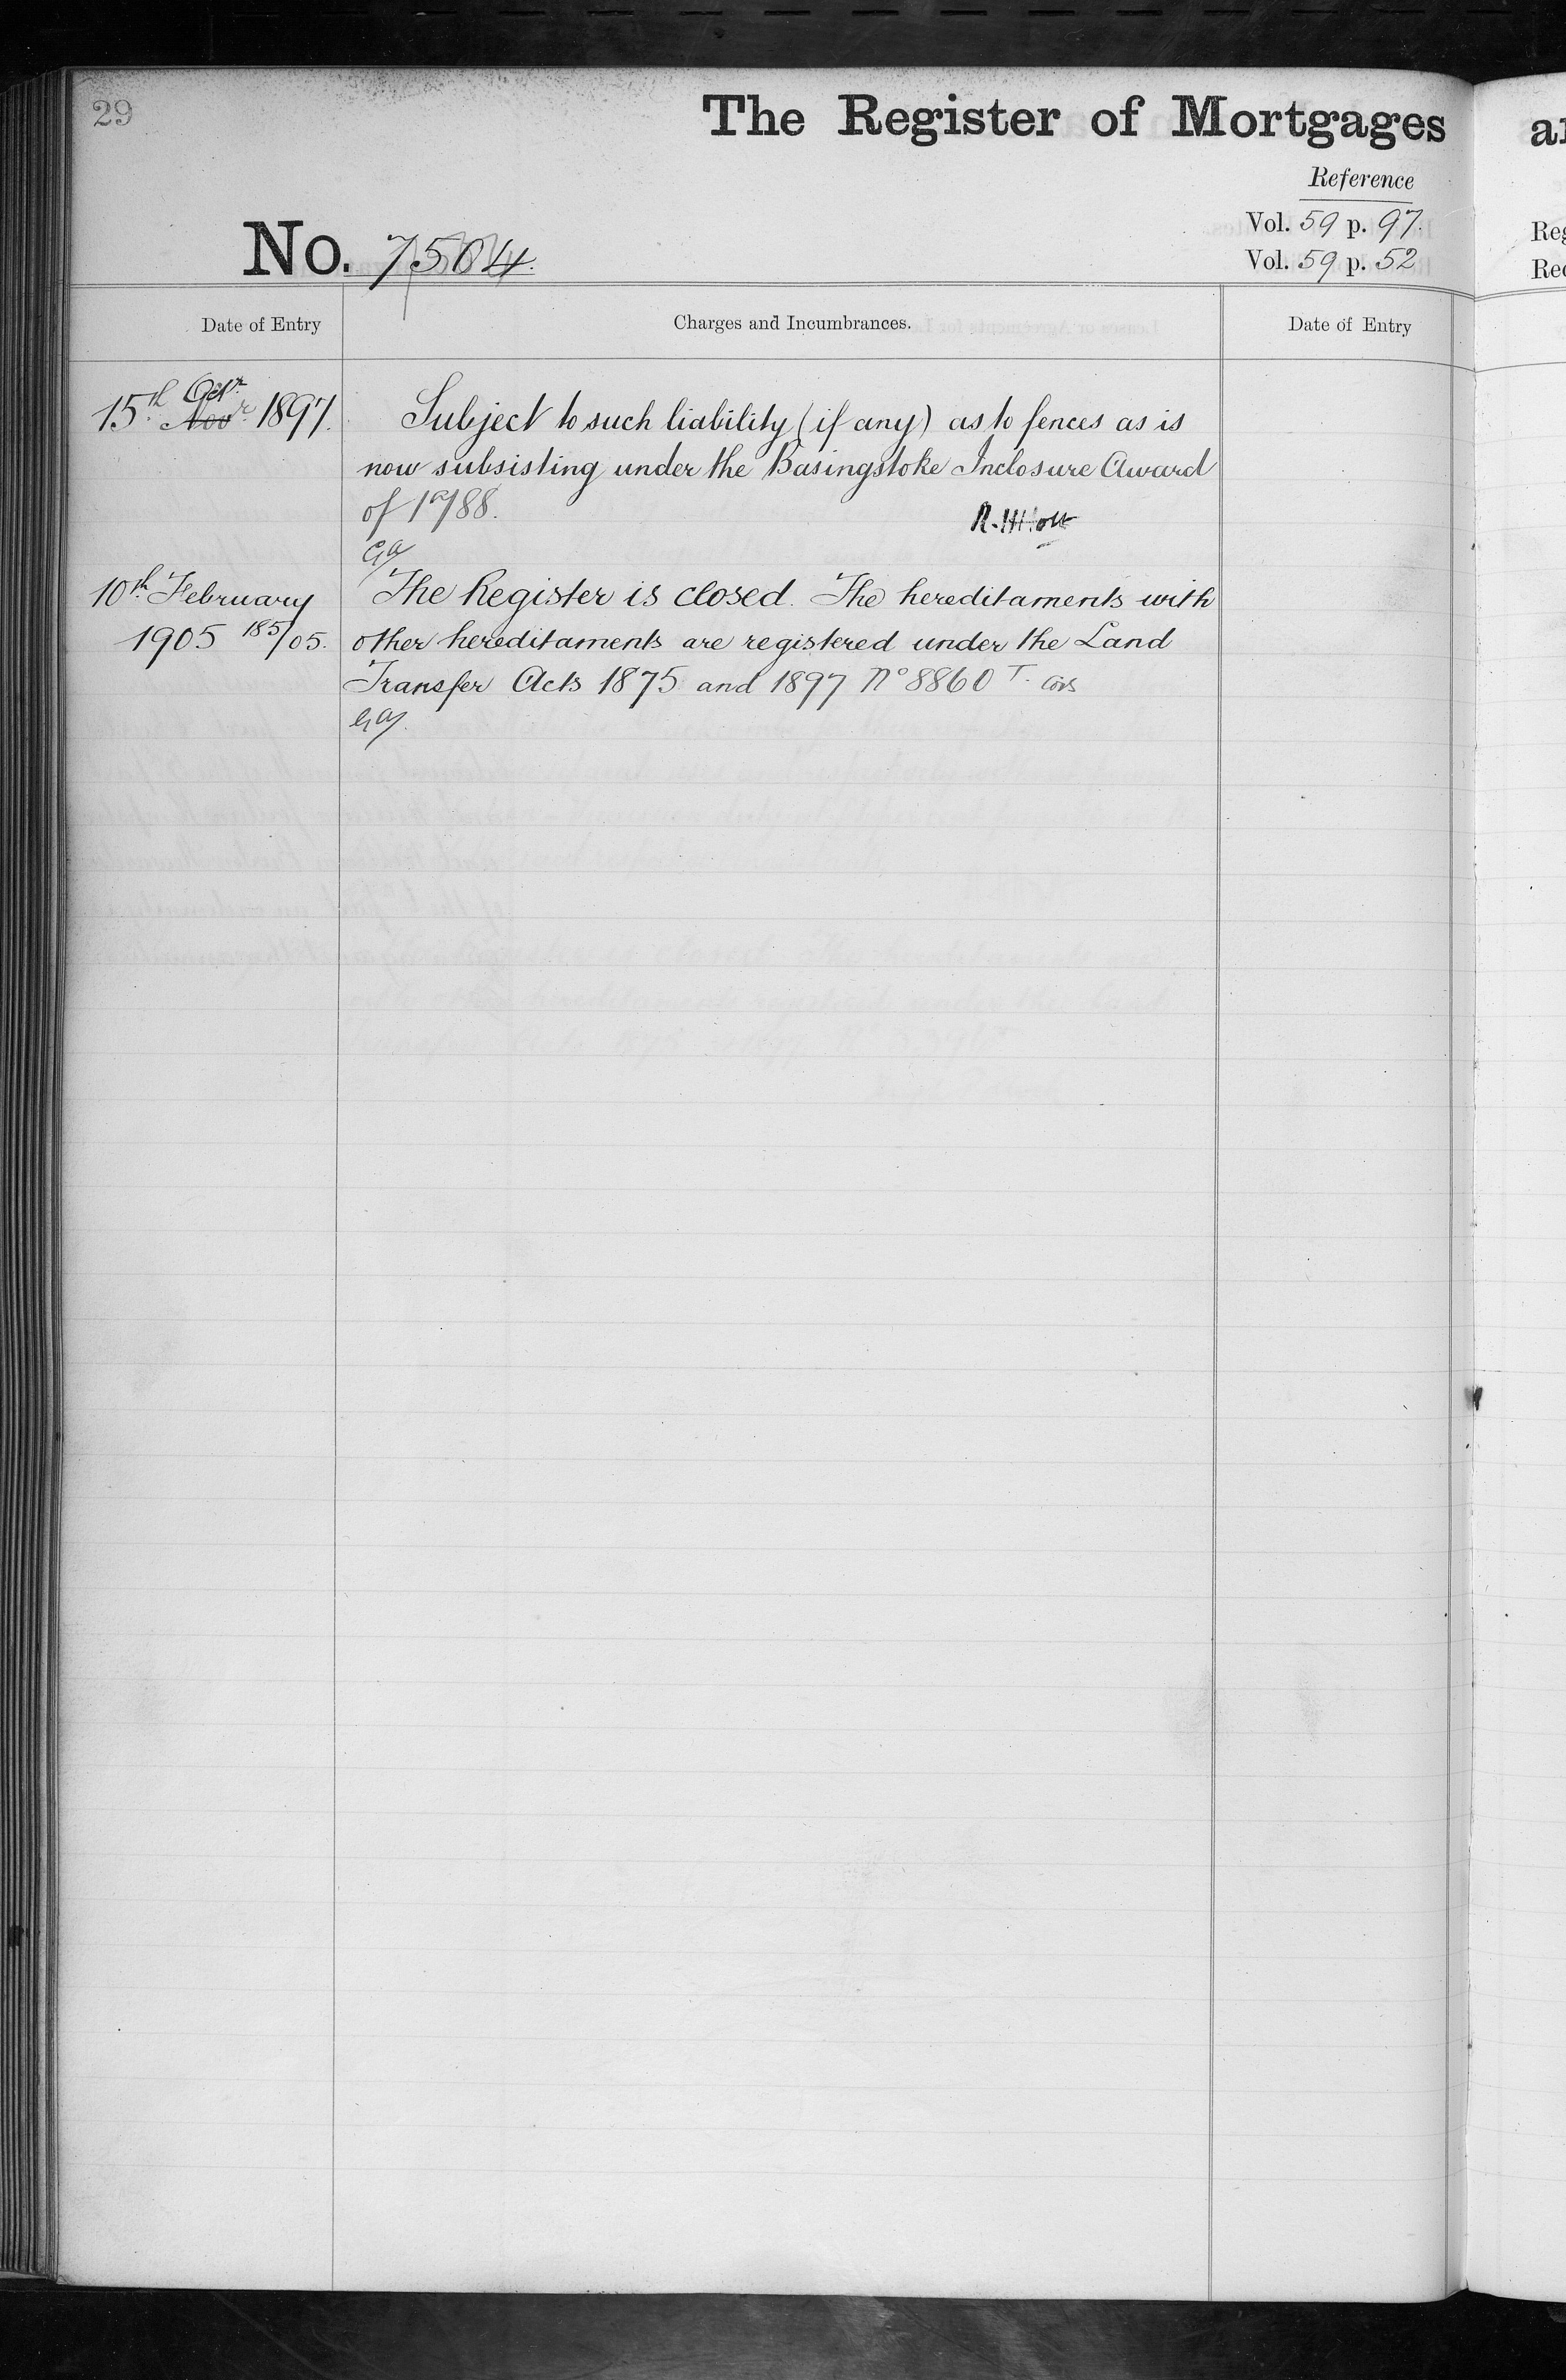 29
The Register of Mortgages
Reference
Vol. 59 p. 97.
Vol. 59 p. 52
No. 7504.
Date of Entry
Charges and Incumbrances.
Date of Entry
15th Octr Novr 1897.
Subject to such liability (if any) as to fences as is
now subsisting under the Basingstoke Inclosure Award
of 1788.
R. H. Holt
10th February
1905 185/05.
The Register is closed. The hereditaments with
other hereditaments are registered under the Land
Transfer Acts 1875 and 1897 No 8860 T.